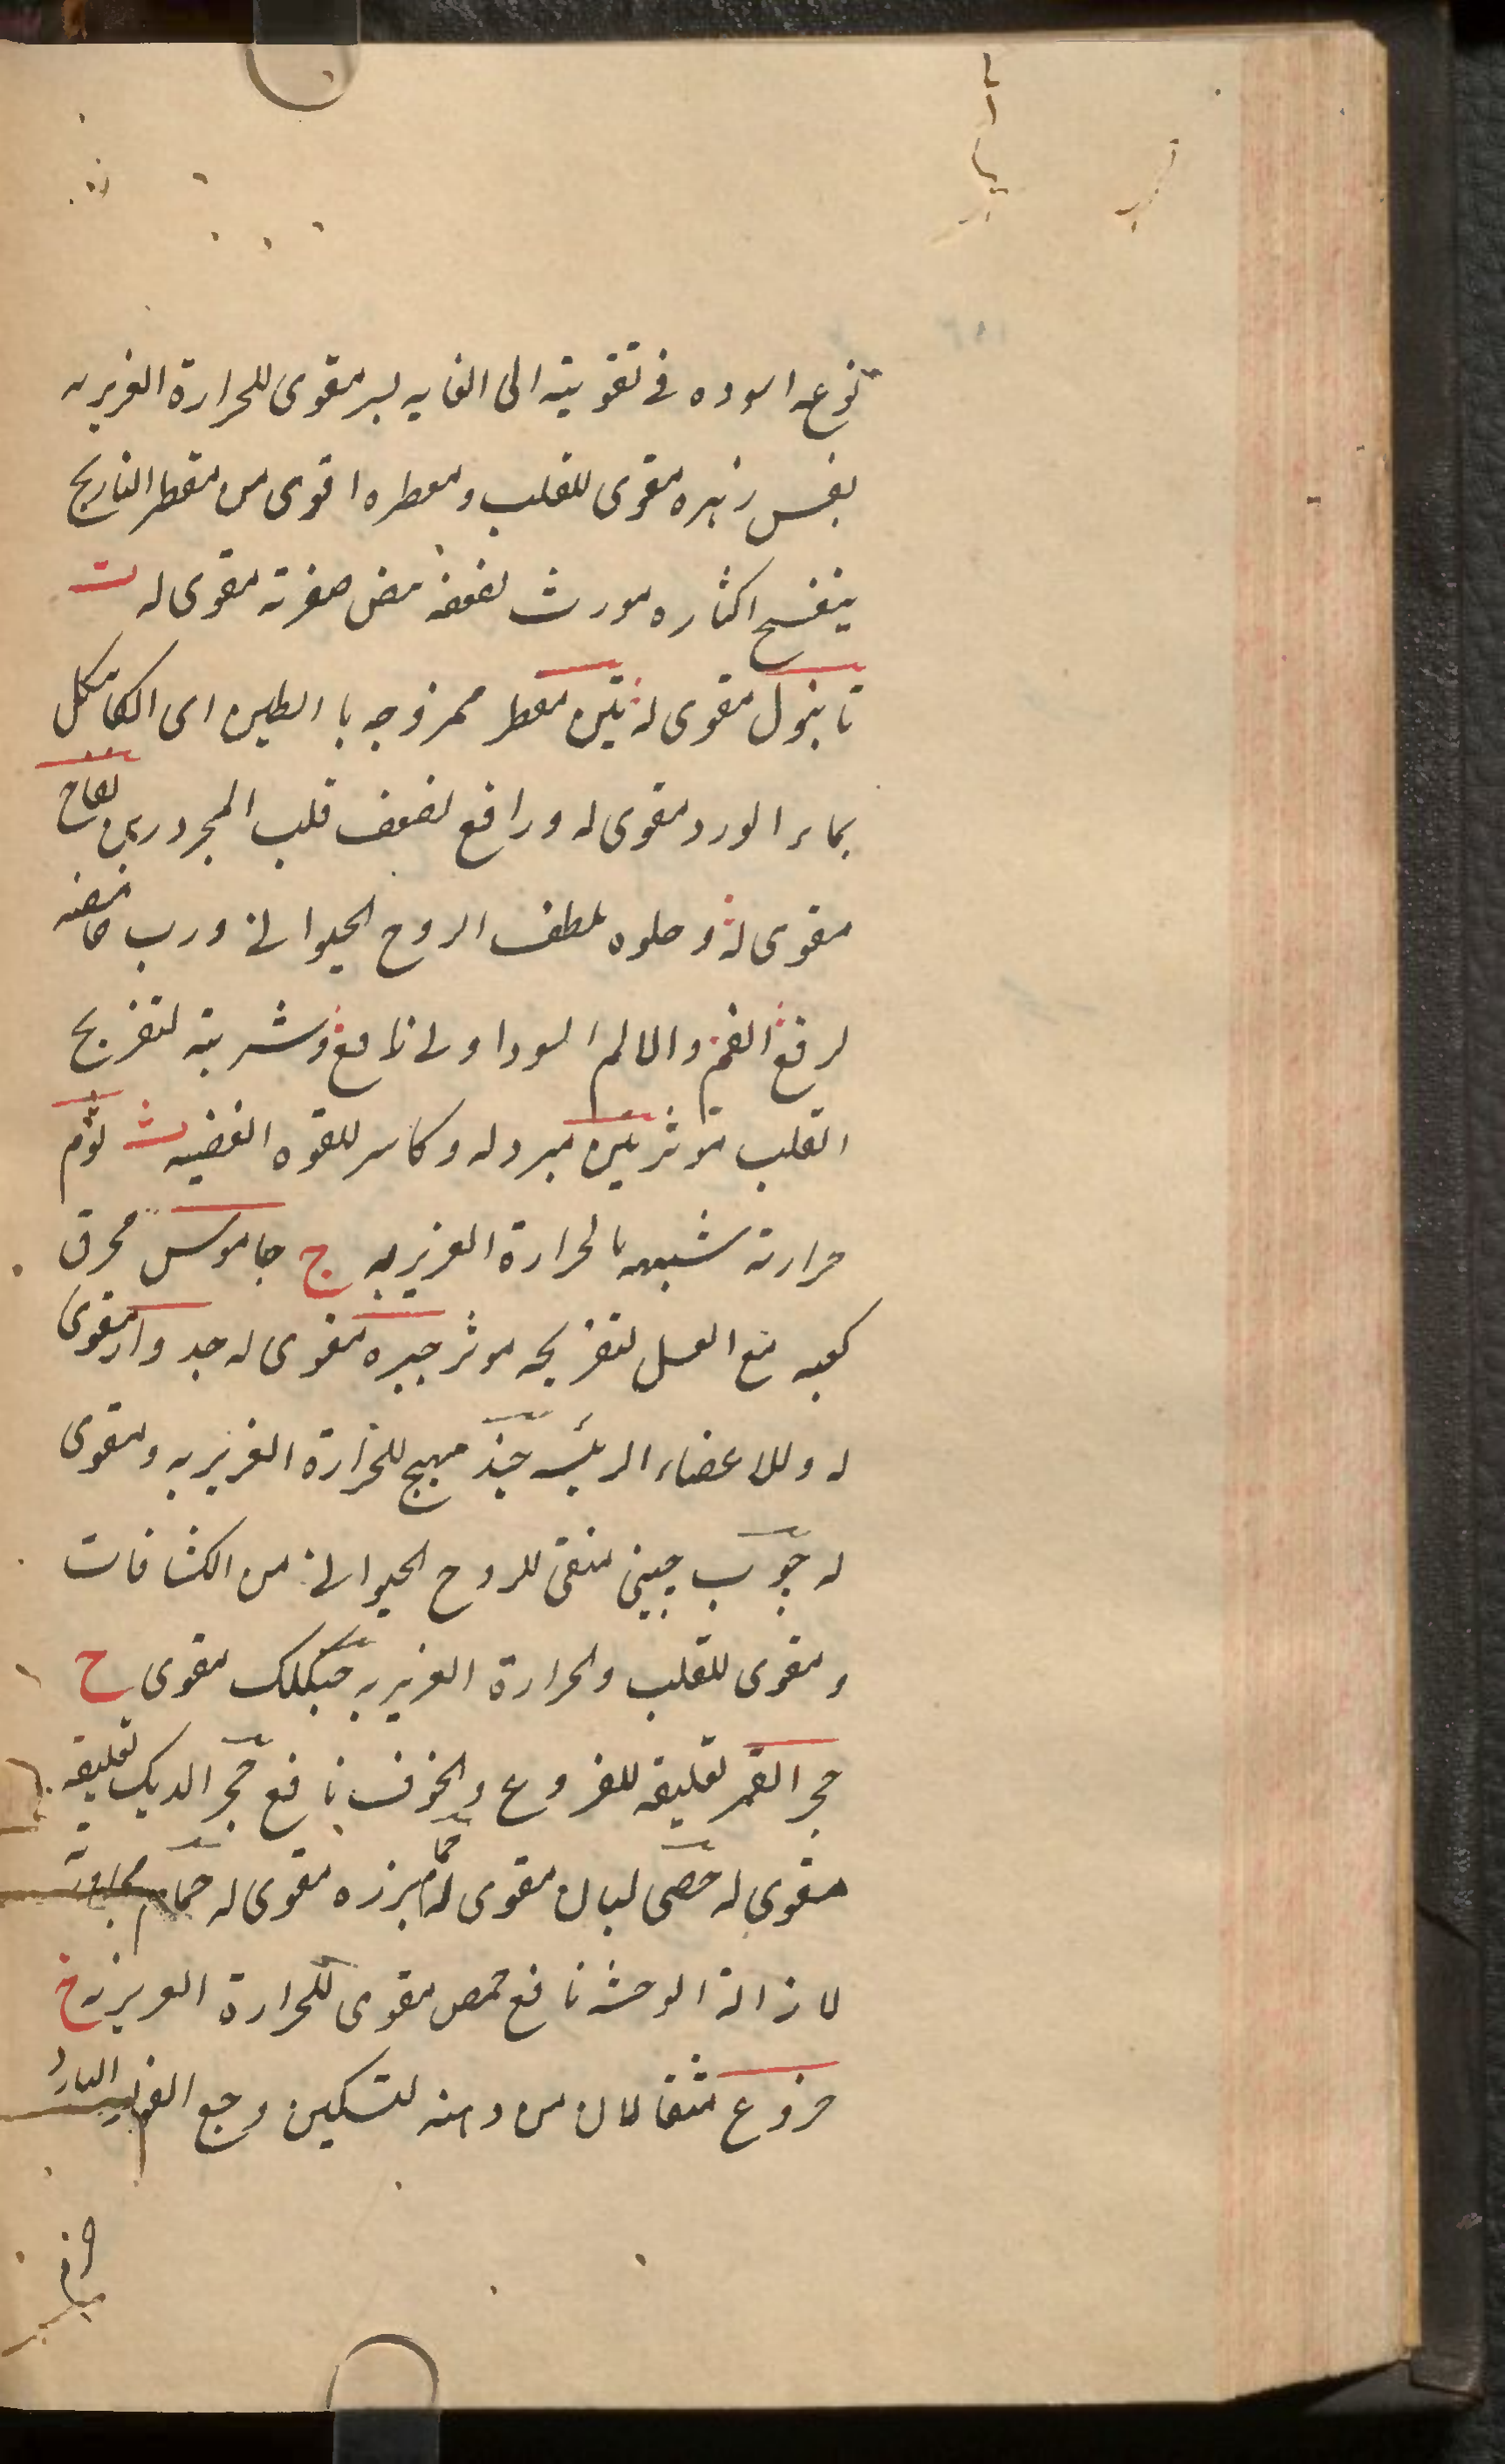 نوعه اسوده فی تقویته الی الغایه بسر مقوی للحرارة الغریزیه
بنفس زهره مقوی للقلب ومعطره اقوی من مقطر النارنج
بنفسج اکثاره مورث لضعفه مض صفرته مقوی له ت
تانبول مقوی له تین مقطر ممزوجه با الطین ای الکل
بماء الورد مقوی له ورافع لضعف قلب المحرورین تفاح
مقوی له وحلوه ملطف الروح الحیوانی ورب حامضه
لرفع الغم والالم السوداوی نافع وشربته لتفریح
القلب موثر تین مبرد له وکاسر للقوه الغضبیه ث ثوم
حرارته شبیهه بالحرارة الغریزیه ج جاموس محرق
کعبه مع العسل لتفریحه موثر جبره مقوی له جدوار مقوی
له وللاعضاء الرئیسه جند مهیج للحرارة الغریزیه ومقوی
له چوب چینی منقی للروح الحیوانی من الکثافات
ومقوی للقلب والحرارة الغریزیه مقوی ح
حجر القمر تعلیقه للفزوع والخوف نافع حجر الدیک تعلیقه
مقوی له حصی لبان مقوی له مقوی له حمام
لازالة الوحشه نافع حمص مقوی للحرارة الغریزیه خ
خروع مثقالان من دهنه لتسکین وجع البارد